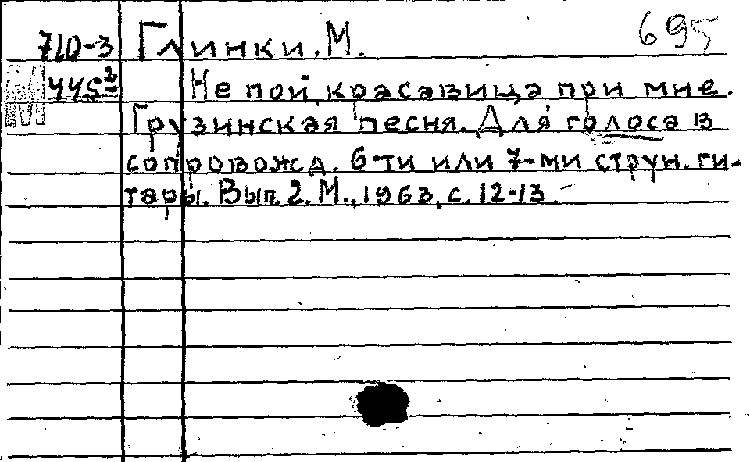 695
710-3 Глинки. М.
445² Не пой, красавица при мне.
Грузинская песня. Для голоса в
сопровожд. 6-ти или 7-ми струн. ги-
тары. Вып. 2. М., 1963, с. 12-13